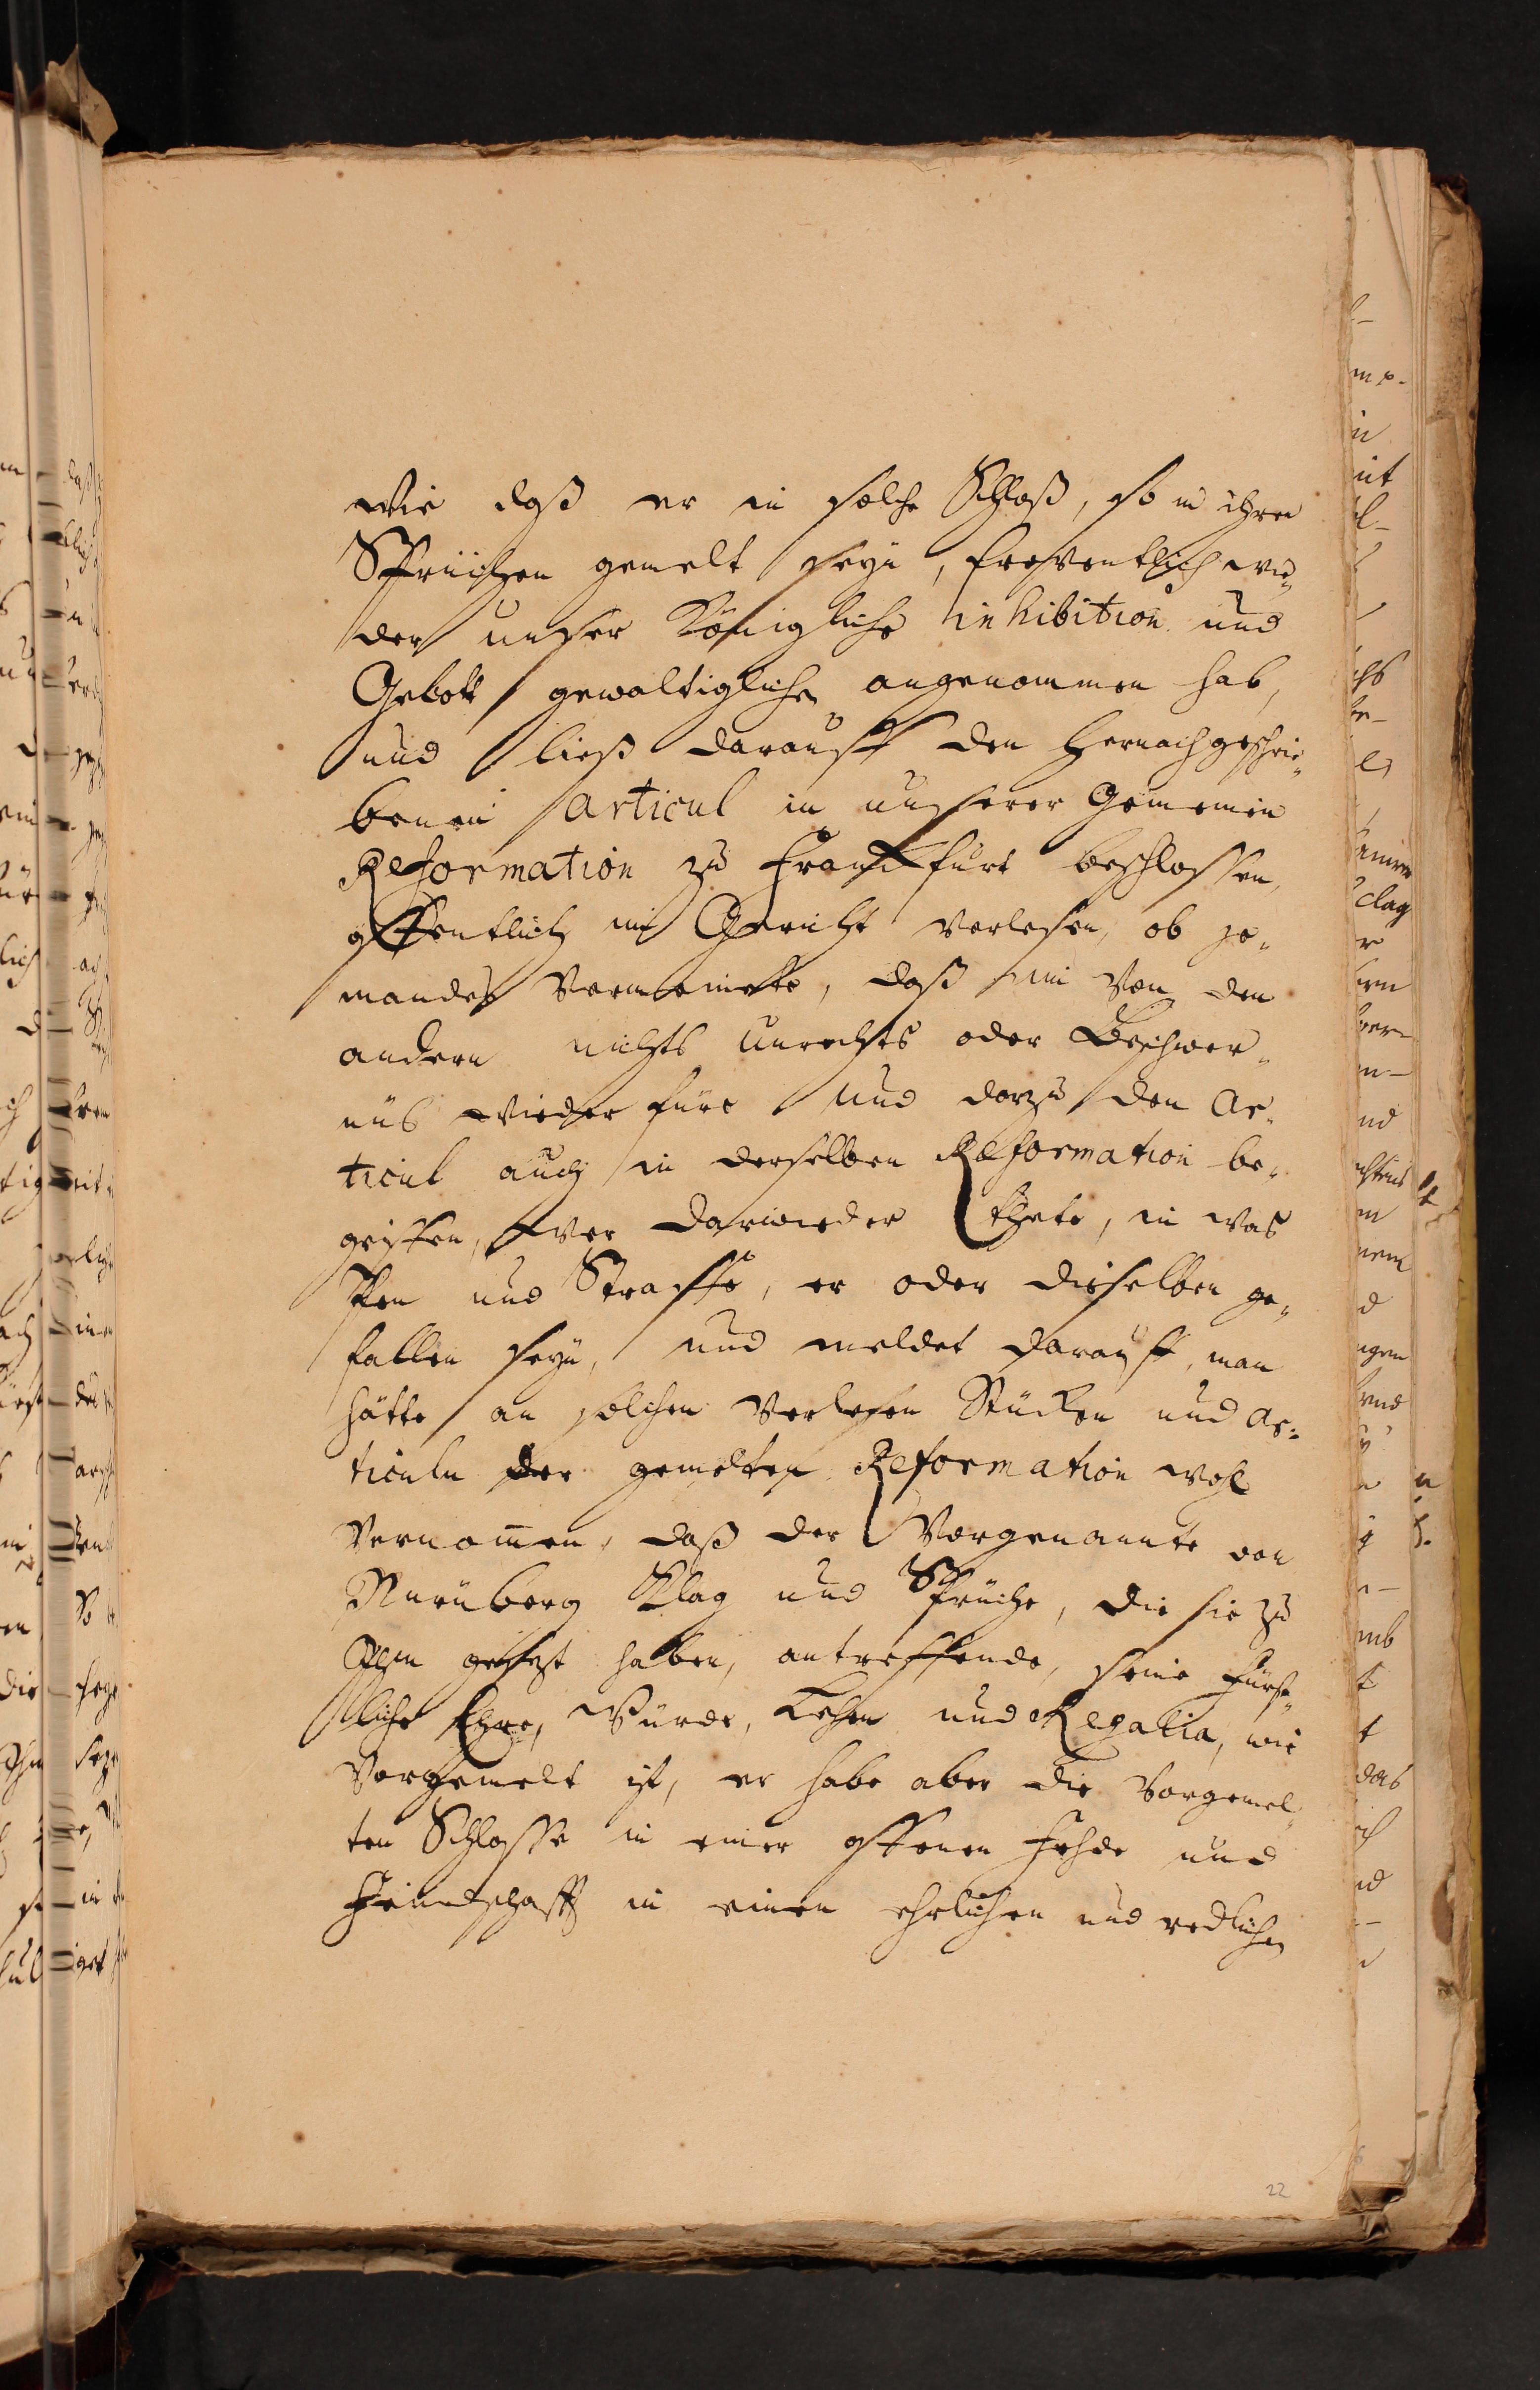 wie daß er in solche Schloß, so in ihren
Sprüchen gemelt seyn, freventlich wie„
der unser Königliche inhibition und
Gebott gewaltigliche angenommen hab,
und ließ darauff den hernachgeschrie„
benen articul in unserer Gemeinen
Reformation zu Franckfurt beschlossen,
offentlich im Gericht verlesen, ob je„
mandes vermeinete, daß ein von den
andern nichts unrechts oder Beschwer„
nüs wiederfüre und darzu den Ar„
ticul auch in derselben Reformation be„
griffen, wer darwieder thete, in was
Pen und Straffe, er oder dieselben ge„
fallen seyn, und meldet darauff, man
hätte an solchen verlesen Stücken und Ar„
ticuln der gemelten Reformation wohl
vernom̅en, daß der Vorgenannte von
Nürnberg Klag und Sprüche, die sie zu
Ihm gesezt haben, antreffende, seine Fürst„
liche Ehre, Würde, Lehen und Regalia, wie
vorgemelt ist, er habe aber die vorgemel„
ten Schlosse in einer offenen Fehde und
Feindschafft in einen ehrlichen und redlichen
22